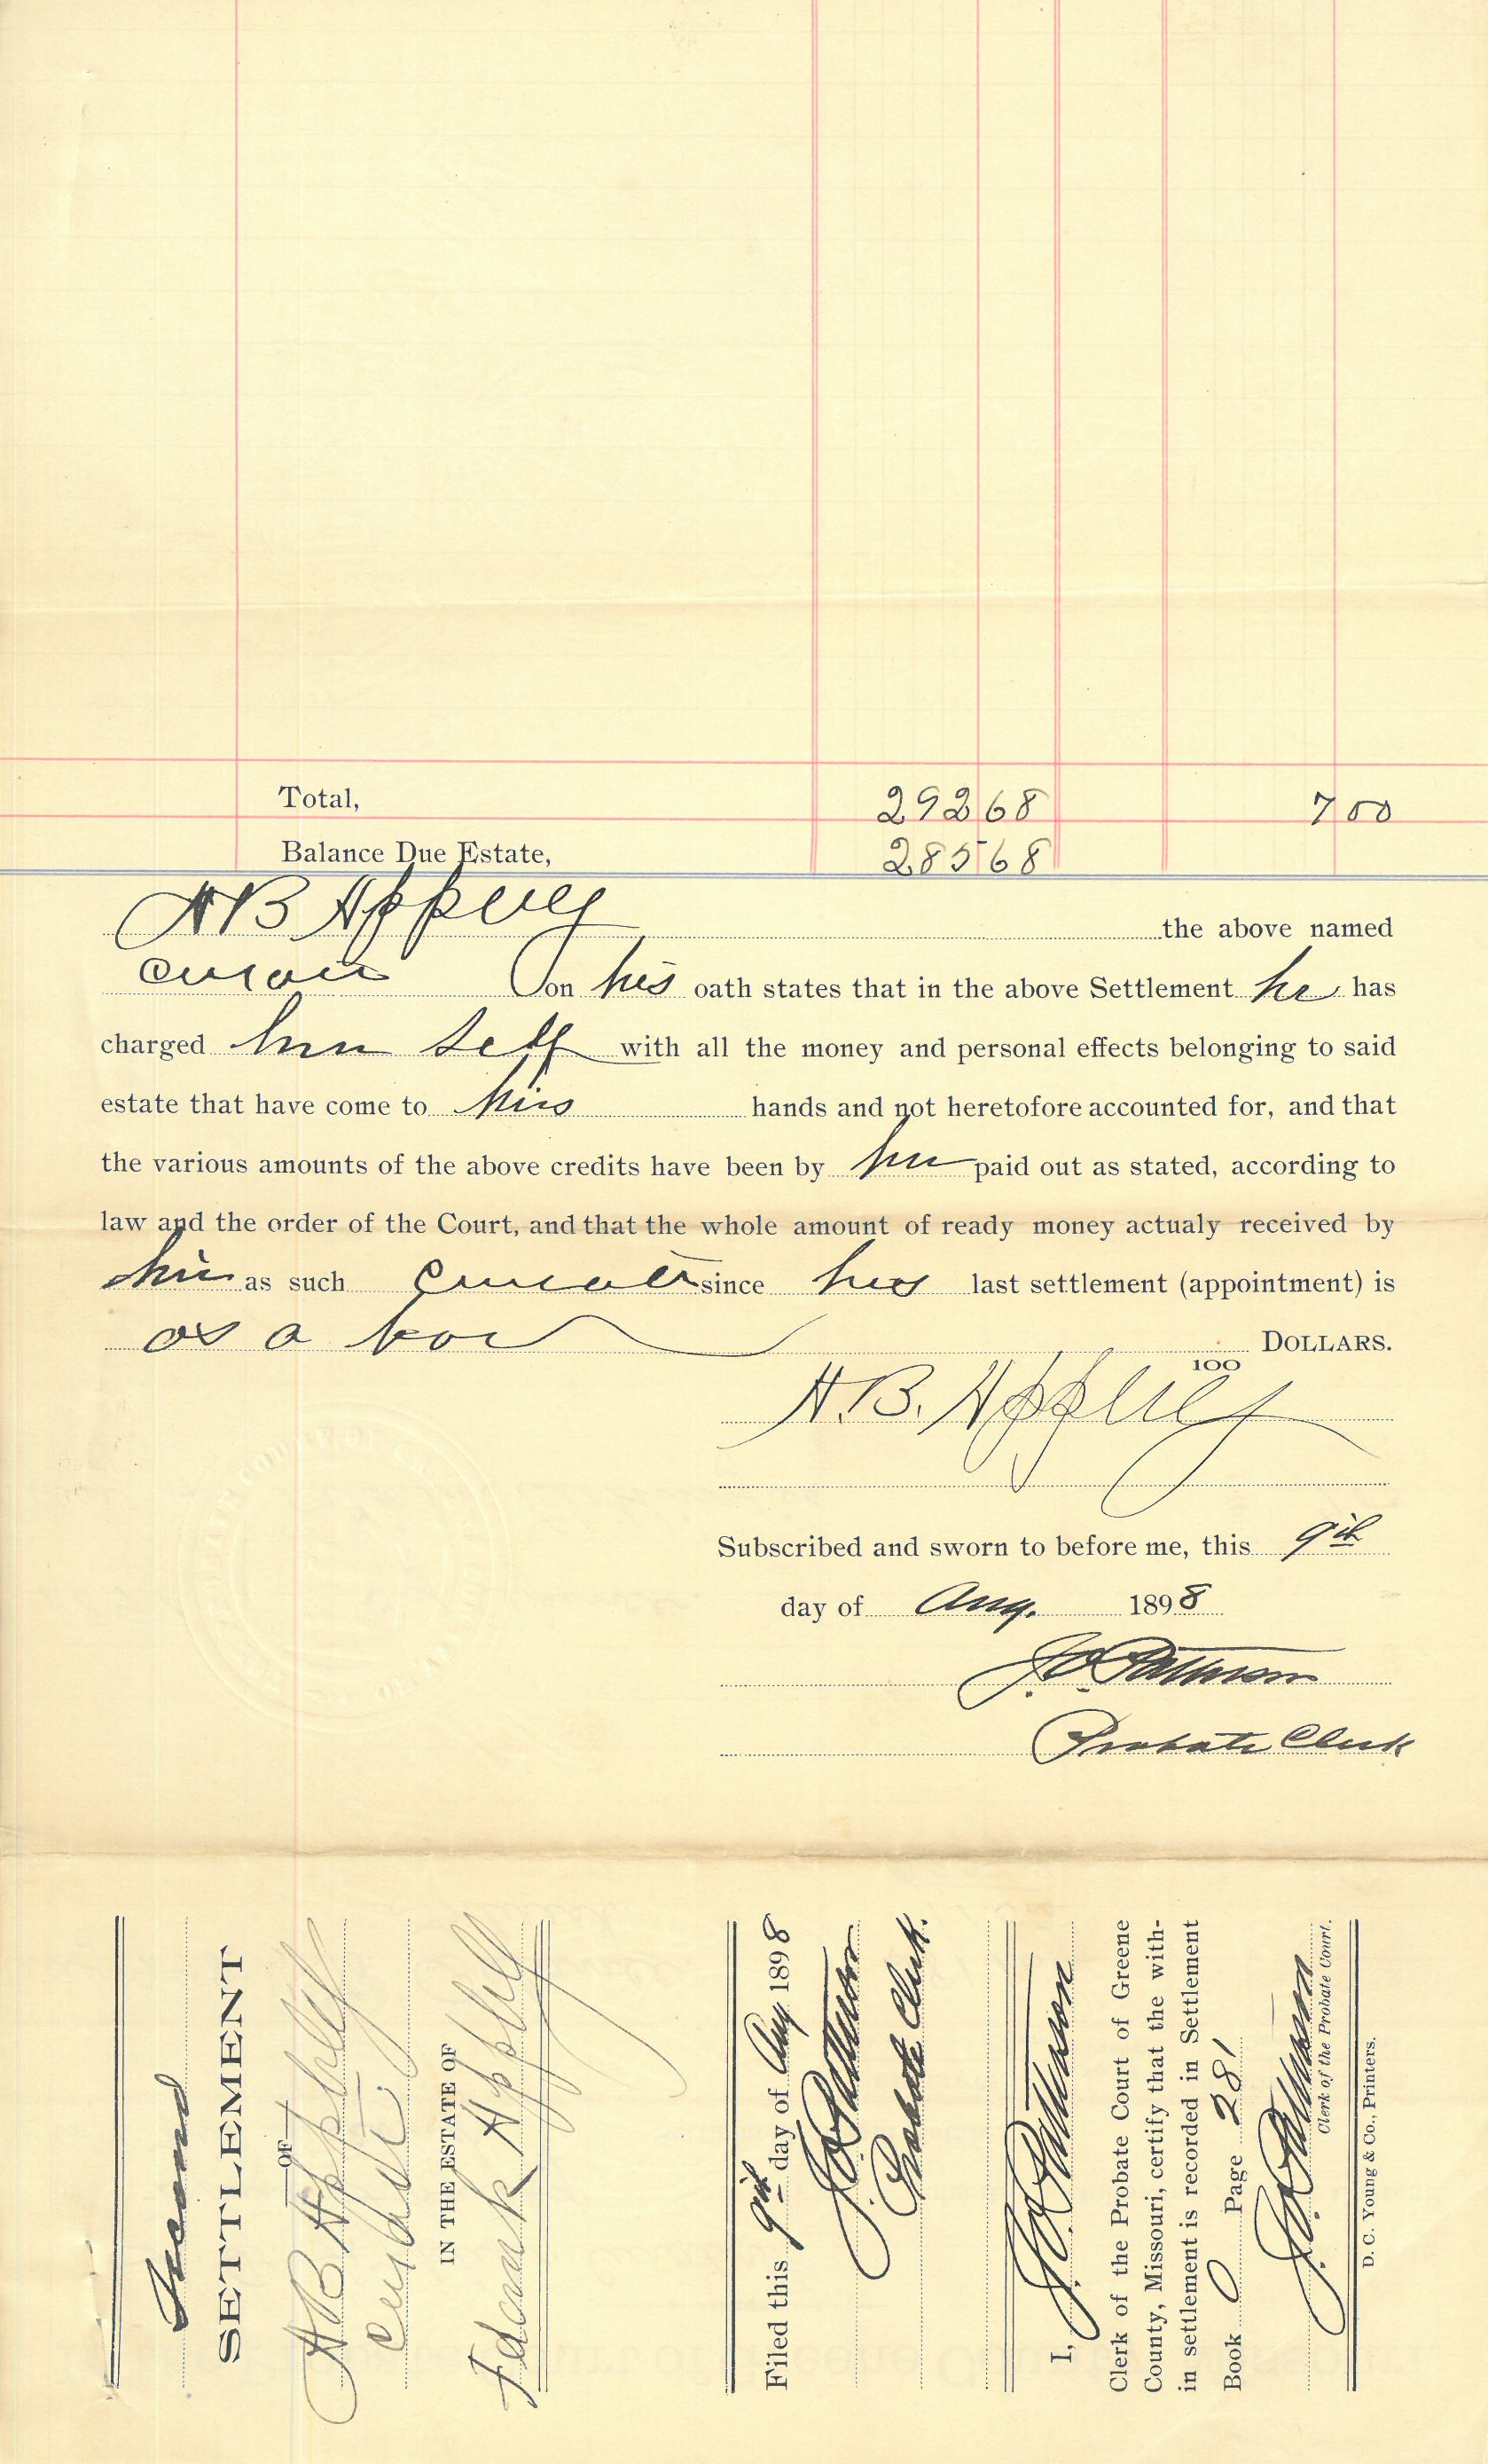 Total, 292 68 7 00
Balance Due Estate, 285 68
A B Appleby the above named
curator on his oath states that in the above Settlement he has
charged him self with all the money and personal effects belonging to said
estate that have come to his hands and not heretofore accounted for, and that
the various amounts of the above credits have been by him paid out as stated, according to
law and the order of the Court, and that the whole amount of ready money actualy received by
him as such curator since his last settlement (appointment) is
as a bov DOLLARS.
100
A. B. Appleby
Subscribed and sworn to before me, this 9th
day of Aug. 1898
J. O. Patterson
Probate Clerk
Second
SETTLEMENT
OF
A B Appleby
Curator
IN THE ESTATE OF
Frank Appleby
Filed this 9th day of Aug 1898
J. O. Patterson
Probate Clerk.
I, J. O. Patterson
Clerk of the Probate Court of Greene
County, Missouri, certify that the with-
in settlement is recorded in Settlement
Book O Page 281
J. O. Patterson
Clerk of the Probate Court.
D. C. Young & Co., Printers.